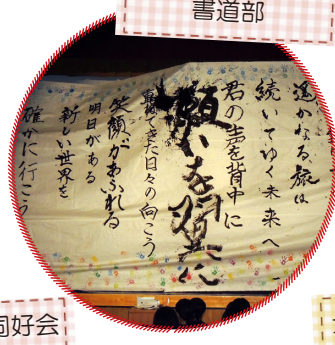 書道部
遥かなる旅は
続いてゆく未来へ
君の声を背中に
願いを翼に
夢みてきた日々の向こう
笑顔があふれる
明日がある
新しい世界を
確かに行こう
同好会